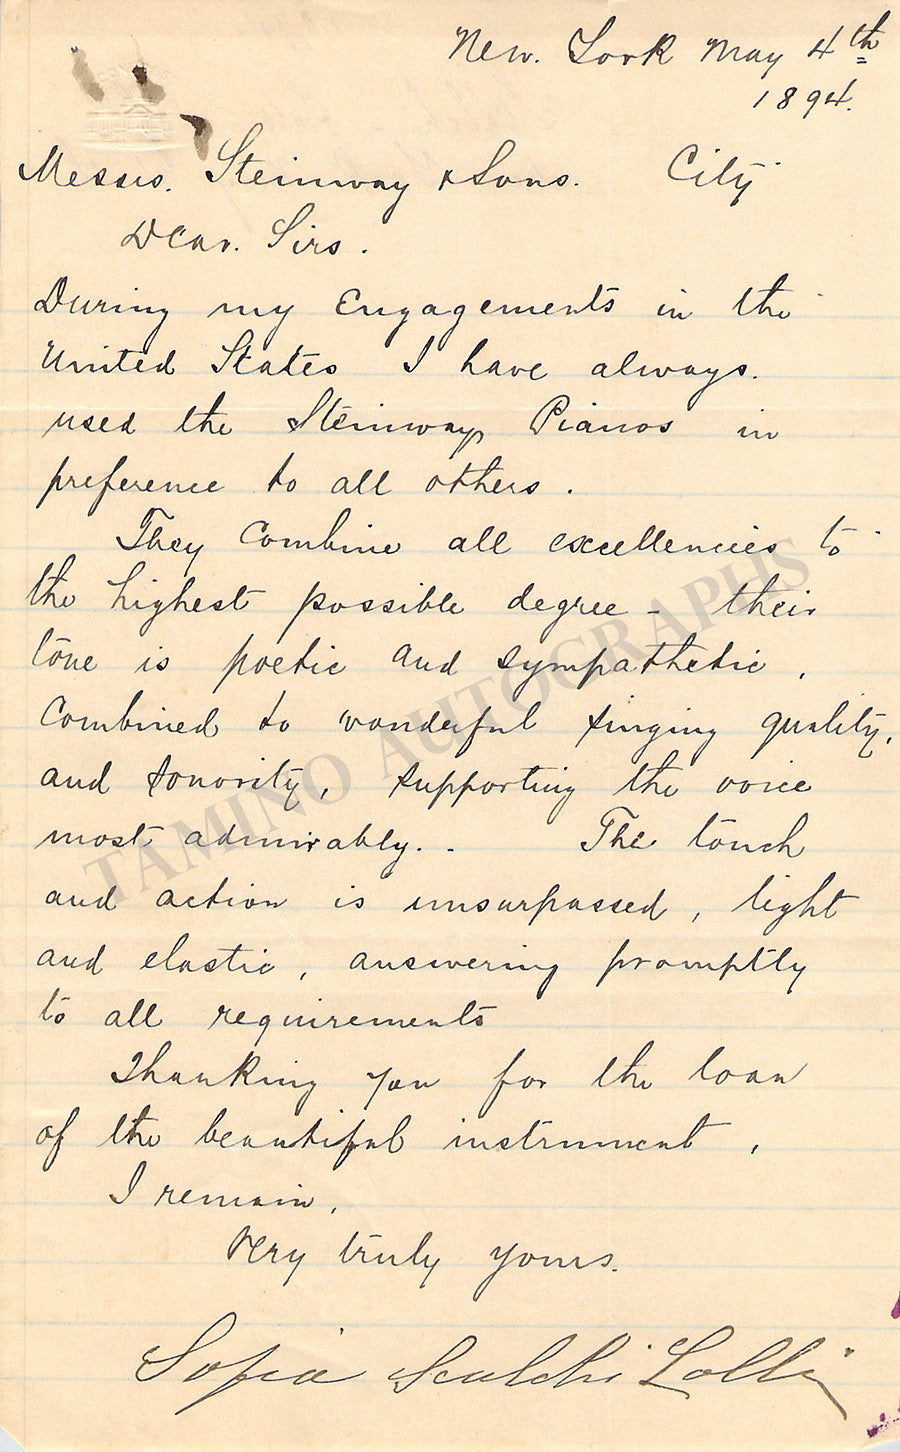 New. York May 4th
1894.
Messrs. Steinway & Sons. City
Dear. Sirs.
During my Engagements in the
United States I have always.
used the Steinway Pianos in
preference to all others.
They combine all excellencies to
the highest possible degree - their
tone is poetic and sympathetic,
combined to wonderful singing quality,
and sonority, supporting the voice
most admirably. - The touch
and action is unsurpassed, light
and elastic, answering promptly
to all requirements
Thanking you for the loan
of the beautiful instrument,
I remain,
Very truly yours.
Sofia Scalchi Lolli
TAMINO AUTOGRAPHS